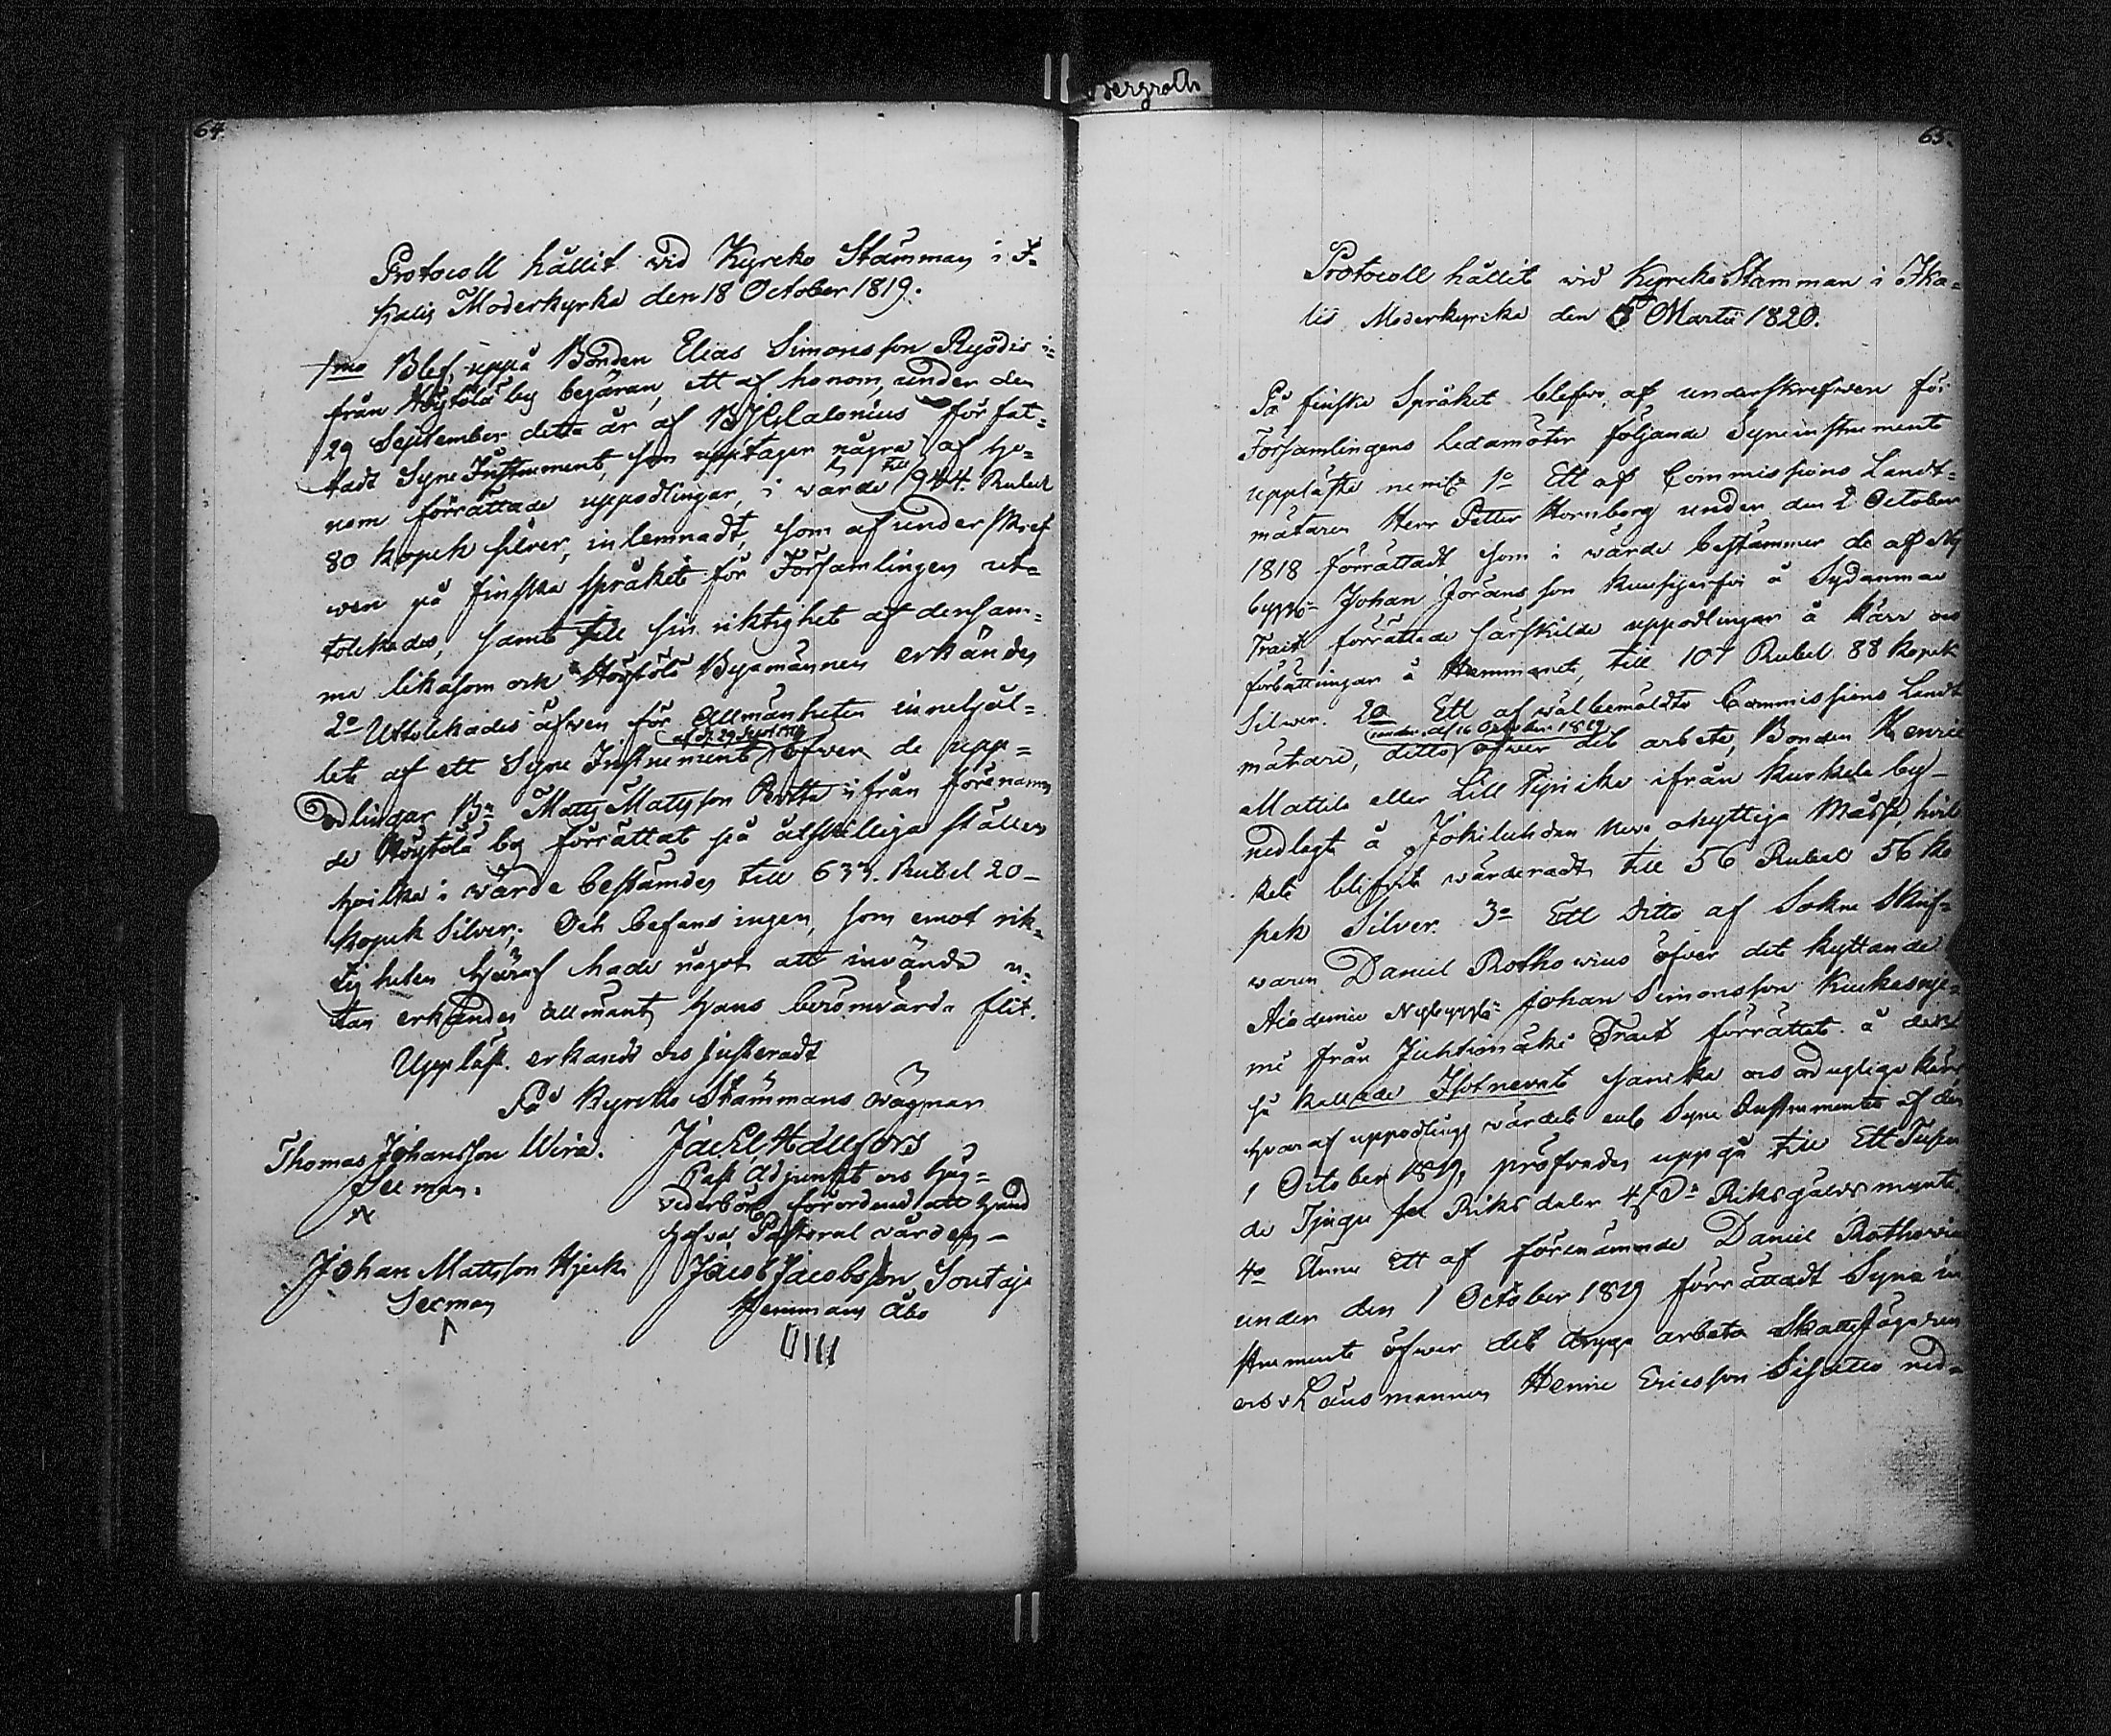 Bergroth
64.
Protocoll hållit vid Kyrcko Stämman i I-
kalis Moderkyrka den 18 October 1819.
1mo Blef, uppå Bonden Elias Simonsson Rysdis i-
från Höytölä by begäran, ett af honom, under den
29 September detta år af Calonius författ-
tadt Syne Instrument, som upptager några af ho-
nom förrättade uppodlingar, i värde till 1944. Rubel
80 kopek silver, inlemnadt, som af underskref
wen på finska språket för Församlingen ut-
tolckades, samt till sin riktighet af densam-
ma likasom ock Höytölä Byamännen erkändes
2o Uttolckades äfwen för Allmänheten innehål-
let af ett Syne Instrument af d. 29 Sept. 1819 öfwer de upp-
odlingar Bn Matts Mattsson Rotta ifrån förenämn
de Höytölä by förrättat på åtskilliga ställen
hvilka i värde bestämdes till 633. Rubel 20-
kopek Silver; Och befans ingen, som emot rik-
tigheten häraf hade något att invända u-
tan erkändes allmänt hans berömvärda flit.
Uppläst. erkändt och justeradt
På Kyrcko Stämmans vägnar
Thomas Johansson Wira.
Sexman.
Johan Mattsson Kjeck.
Sexman
Jac El Hallfors
Past. Adjunct och här-
vederbörl. förordnad att hand
hafva Pastoral vården-
Jacob Jacobsson Sontaja
Hemmans Åbo
65.
Protocoll hållit vid Kyrcko Stämman i Ika-
lis Moderkyrka den 5 Martii 1820.
På finska Språket blefvo, af underskrefwen för
Församlingens ledamöter följande Syneinstrumente
uppläste neml: 1o Ett af Commissions Landt-
mätaren Herr Petter Hornborg under den 2 October
1818 förrättadt, som i värde bestämmer de af Ny
byggn Johan Göransson å Sydanmaa
Tract förrättade särskilde uppodlingar å kärr och
förbättringar å Hemmanet, till 107 Rubel 88 kopek
Silver. 2o Ett af wälbemäldte Commissions Landt
mätare, ditto under d. 16 October 1819 öfver det arbete, Bonden Henric
Mattila eller Lill Tyrikö ifrån Kurkela by-
nedlagt å Jokiluhdan neva onyttiga Måsse, hvil
ket blifvit värderadt till 56 Rubel 56 ko
pek Silver. 3o Ett ditto af Sokne Skrif-
waren Daniel Rothovius öfver det kyttande
Academie Nybyggn Johan Simonsson Kuckasnie-
mi från Juhtimäki Tract förrättat å den
så kallade Isonevat sanka och oduglige kärr
hvaraf uppodlings värdet enl. Syne Instrumentet af den
1 October 1819, pröfvades uppgå till Ett Tusen
de Tjugu sex Riksdaler 45 S:r Riksgälds mynt.
4o Ännu Ett af förenämnde Daniel Rothovius
under den 1 October 1819 förrättadt Syne in
strument öfwer det dryga arbete Skattejägaren
och Länsmannen Henric Ericsson Sisättö ned-